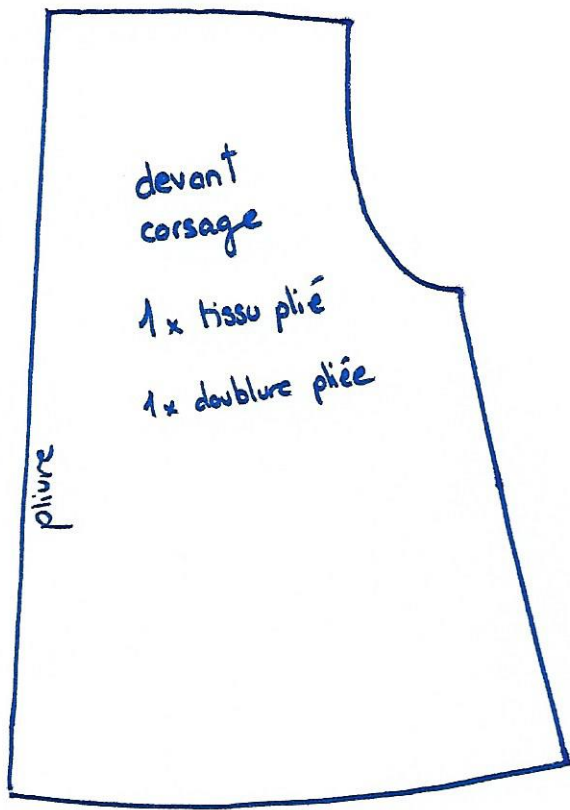 devant
corsage
1 x tissu plié
1 x doublure pliée
pliure